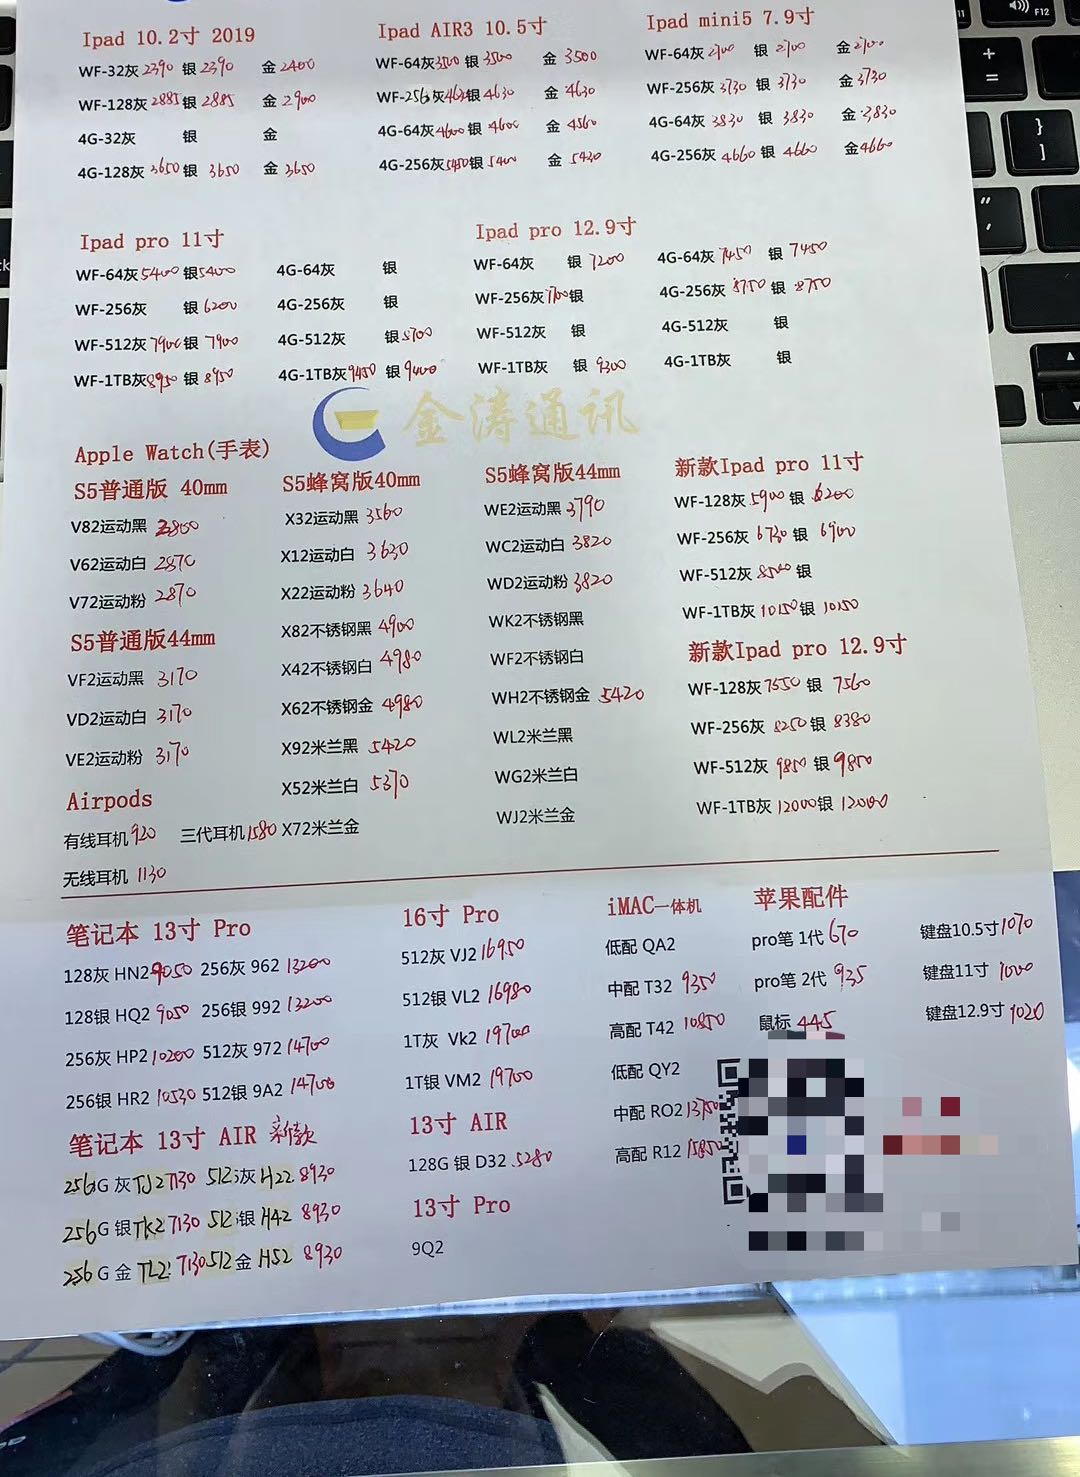 Ipad 10.2寸 2019
WF-32灰2390 银2390 金2400
WF-128灰2885 银2885 金2900
4G-32灰 银 金
4G-128灰3650 银3650 金3650
Ipad AIR3 10.5寸
WF-64灰3500 银3500 金3500
WF-256灰4630 银4630 金4630
4G-64灰4600 银4600 金4560
4G-256灰5450 银5400 金5430
Ipad mini5 7.9寸
WF-64灰2700 银2700 金2700
WF-256灰3730 银3730 金3730
4G-64灰3830 银3830 金3830
4G-256灰4660 银4660 金4660
Ipad pro 11寸
WF-64灰5400 银5400 4G-64灰 银
WF-256灰 银6200 4G-256灰 银
WF-512灰7900 银7900 4G-512灰 银8700
WF-1TB灰8950 银8950 4G-1TB灰9450 银9400
Ipad pro 12.9寸
WF-64灰 银7200 4G-64灰7450 银7450
WF-256灰7700 银 4G-256灰8750 银8750
WF-512灰 银 4G-512灰 银
WF-1TB灰 银9300 4G-1TB灰 银
金涛通讯
Apple Watch(手表)
S5普通版 40mm
V82运动黑 2800
V62运动白 2870
V72运动粉 2870
S5普通版44mm
VF2运动黑 3170
VD2运动白 3170
VE2运动粉 3170
Airpods
有线耳机920 三代耳机1580
无线耳机 1130
S5蜂窝版40mm
X32运动黑 3560
X12运动白 3630
X22运动粉 3640
X82不锈钢黑 4900
X42不锈钢白 4980
X62不锈钢金 4980
X92米兰黑 5420
X52米兰白 5370
X72米兰金
S5蜂窝版44mm
WE2运动黑3790
WC2运动白 3820
WD2运动粉 3820
WK2不锈钢黑
WF2不锈钢白
WH2不锈钢金 5420
WL2米兰黑
WG2米兰白
WJ2米兰金
新款Ipad pro 11寸
WF-128灰5900 银6200
WF-256灰 6730 银 6900
WF-512灰 8500 银
WF-1TB灰10150 银10150
新款Ipad pro 12.9寸
WF-128灰7550 银 7560
WF-256灰 8250 银 8380
WF-512灰 9850 银 9850
WF-1TB灰 12000 银 12000
笔记本 13寸 Pro
128灰 HN2 9050 256灰 962 13200
128银 HQ2 9050 256银 992 13200
256灰 HP2 10200 512灰 972 14700
256银 HR2 10530 512银 9A2 14700
笔记本 13寸 AIR 新款
256G 灰 TJ2 7130 512灰 H22 8930
256G 银 TK2 7130 512银 H42 8930
256G 金 TL2 7130 512金 H52 8930
16寸 Pro
512灰 VJ2 16950
512银 VL2 16980
1T灰 Vk2 19700
1T银 VM2 19700
13寸 AIR
128G 银 D32 5280
13寸 Pro
9Q2
iMAC一体机
低配 QA2
中配 T32 9350
高配 T42 10850
低配 QY2
中配 RO2 13750
高配 R12 15850
苹果配件
pro笔 1代 670 键盘10.5寸1070
pro笔 2代 935 键盘11寸 1000
鼠标 445 键盘12.9寸 1020